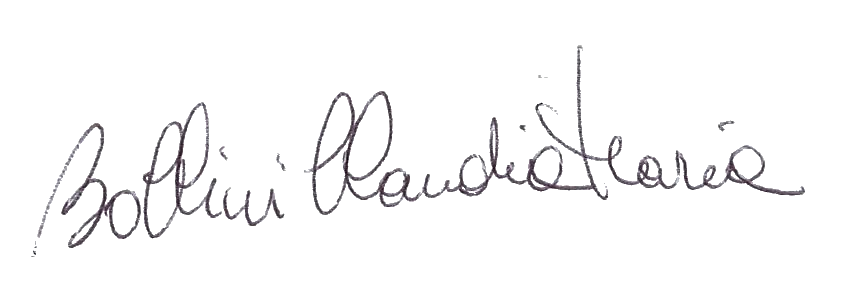 Bollini Claudia Maria